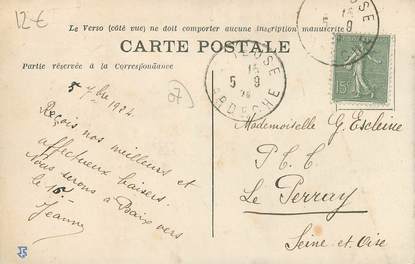 12€
Le Verso (côté vue) ne doit comporter aucune inscription manuscrite
CARTE POSTALE
Partie réservée à la Correspondance
5 7bre 1924
Reçois nos meilleurs et
affectueux baisers.
Nous serons à Baix vers
le 15
Jeanne
07
15 5 9 24
ARDECHE
15c
Mademoiselle G. Escleine
P. C. C.
Le Perray
Seine et Oise